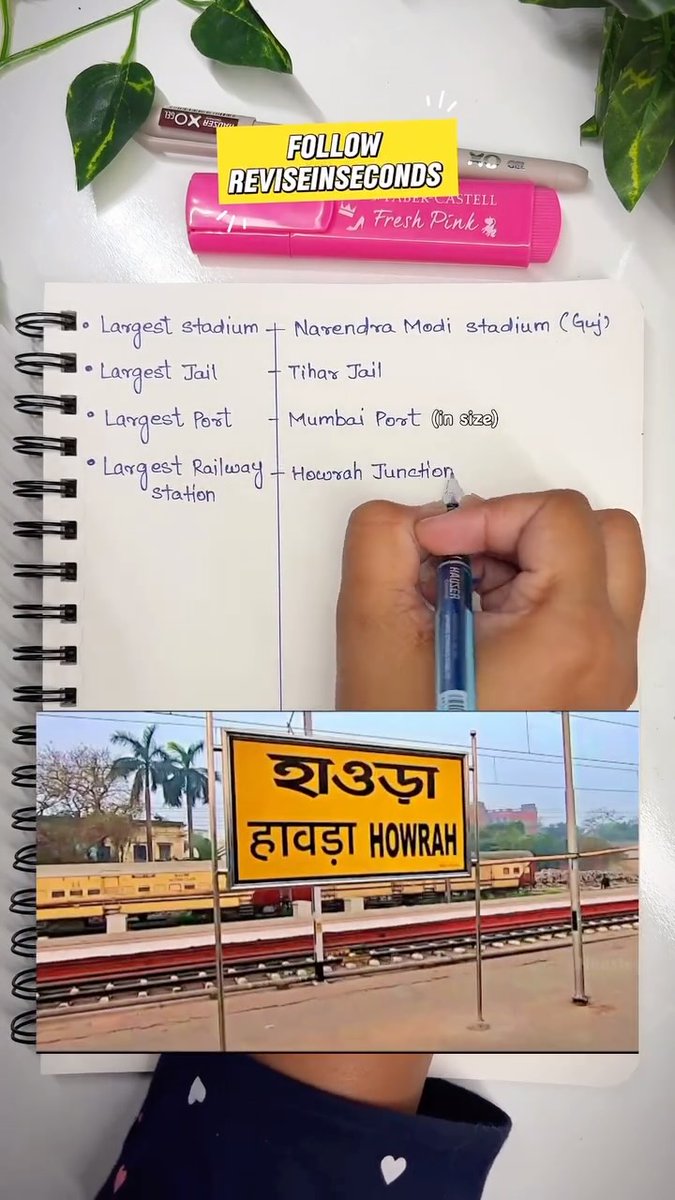 HAUSER XO GEL
XO GEL
FOLLOW
REVISEINSECONDS
FABER-CASTELL
Fresh Pink
• Largest stadium - Narendra Modi stadium (Guj)
• Largest Jail - Tihar Jail
• Largest Port - Mumbai Port (in size)
• Largest Railway - Howrah Junction
station
HAUSER
হাওড়া
हावड़ा HOWRAH